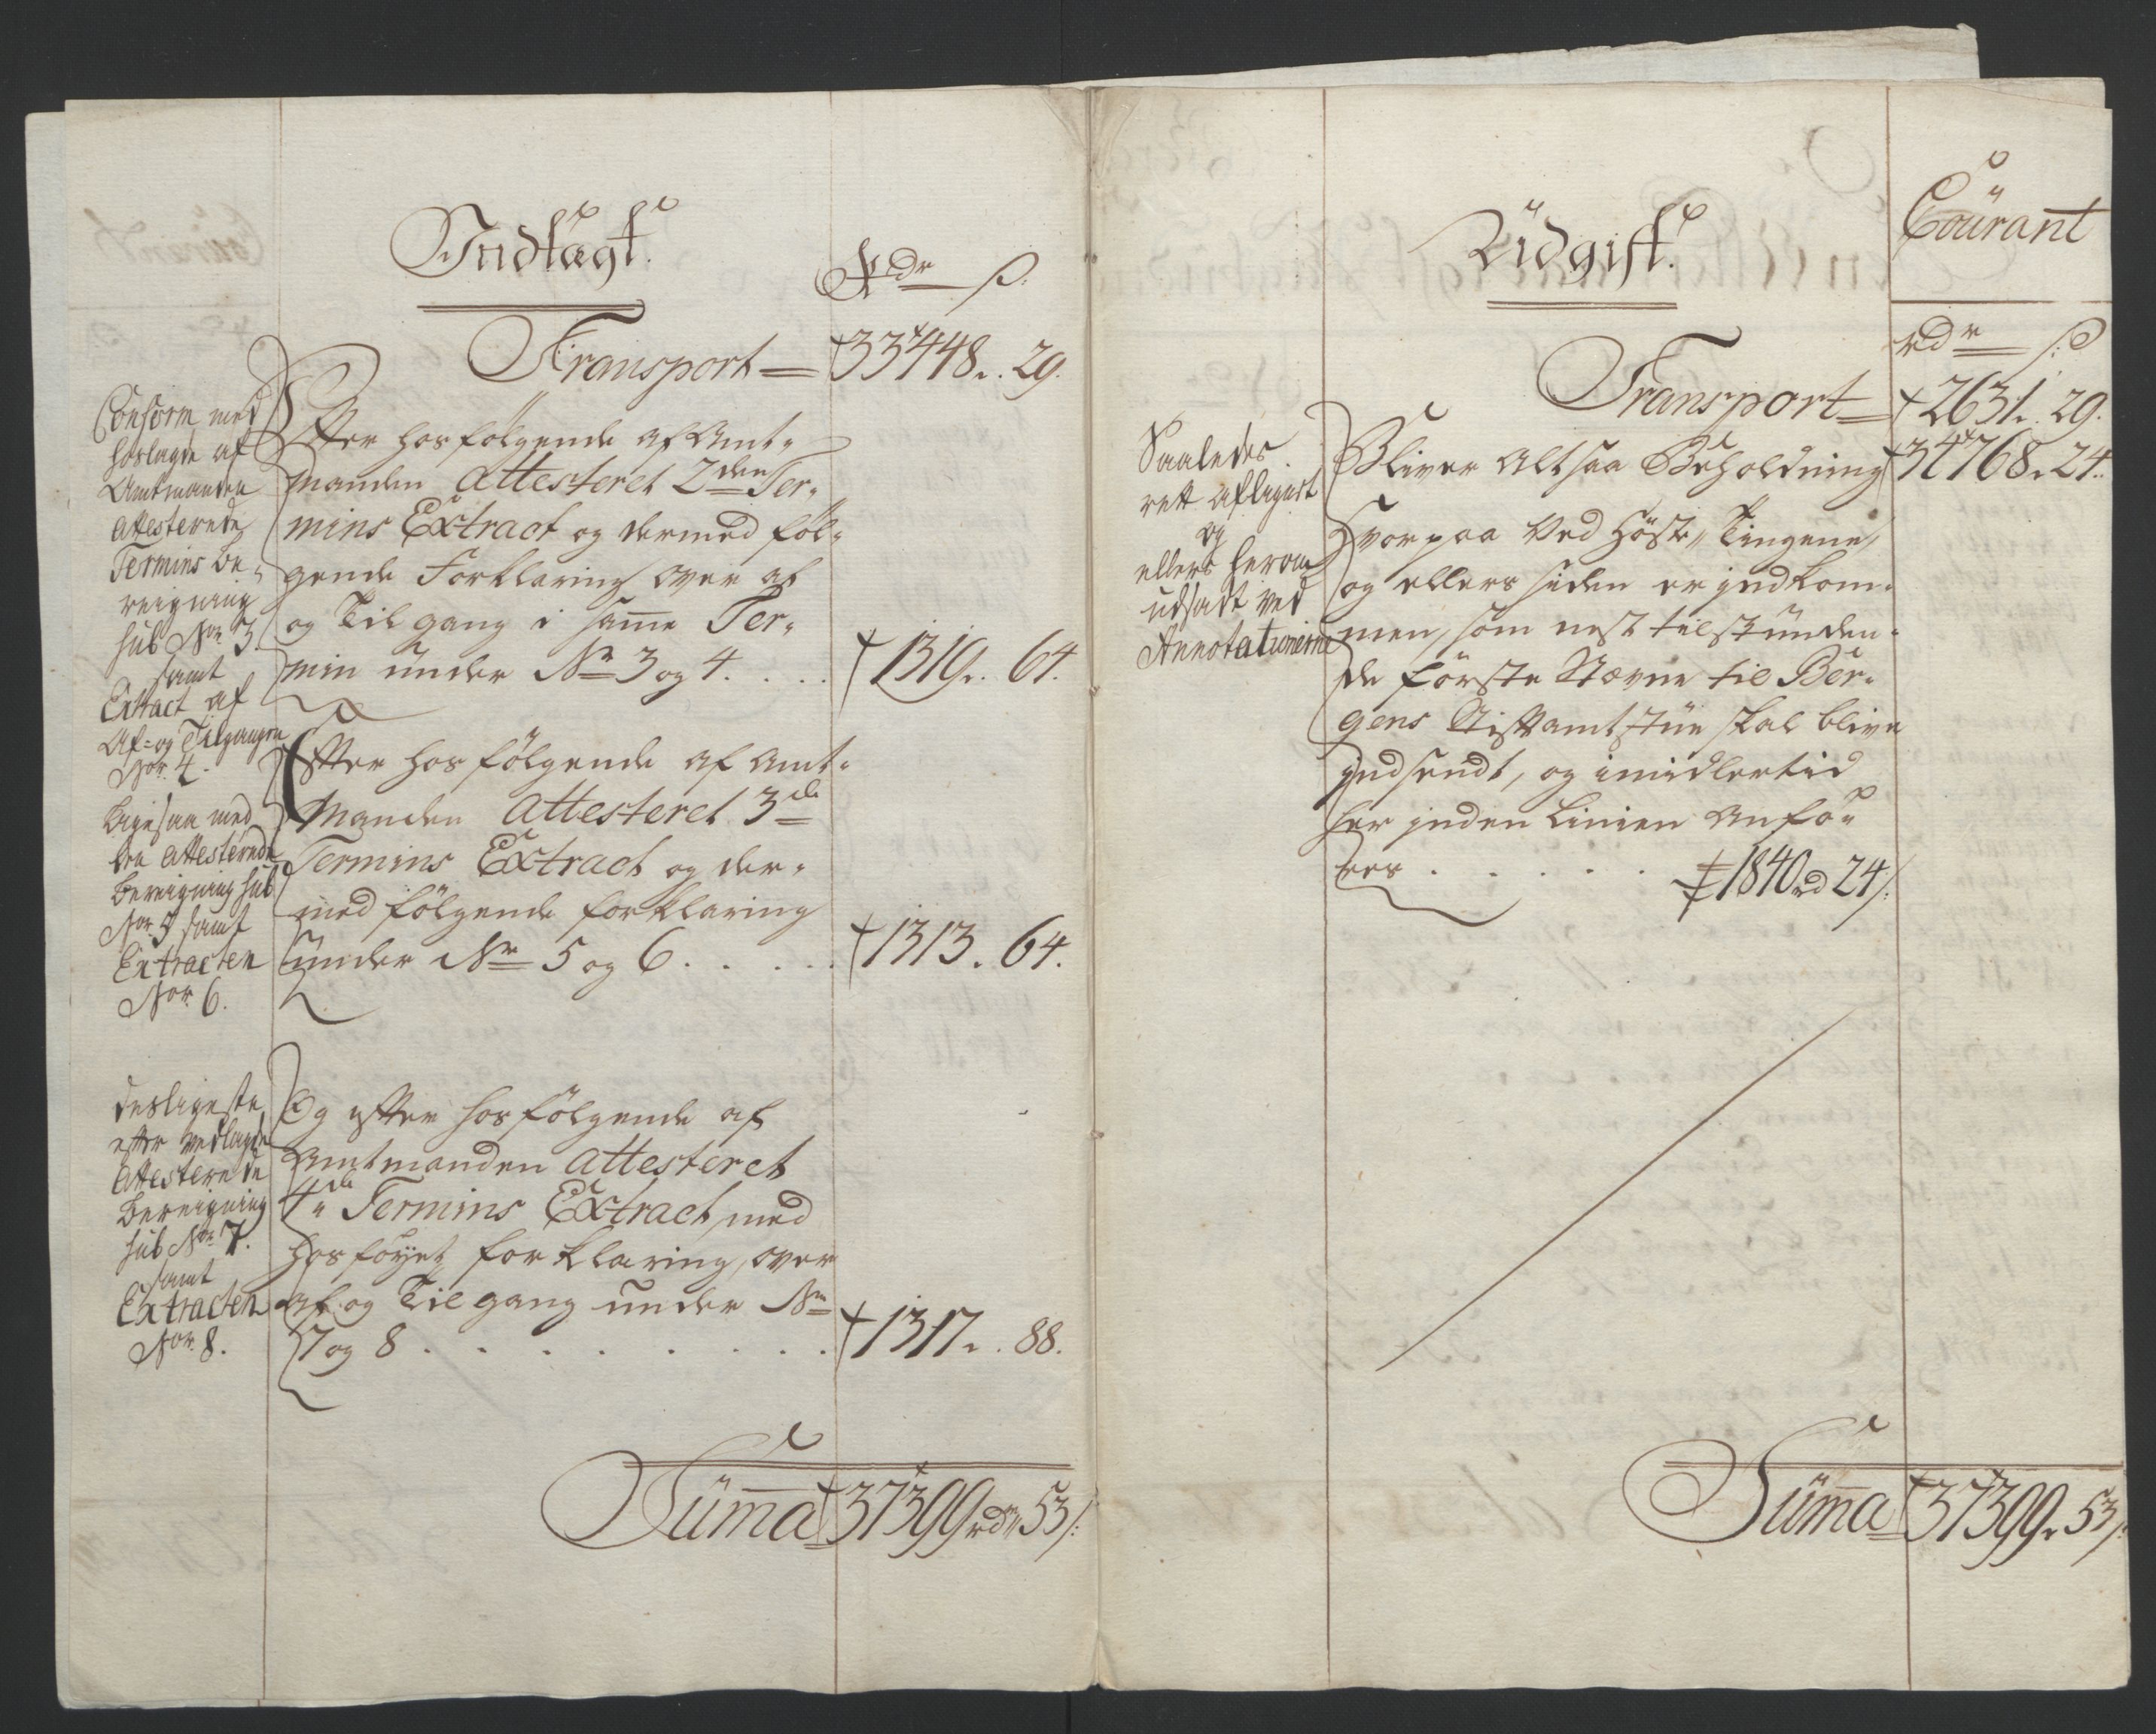 Indtægt.
Rdr ß.
Transport = 33448. 29.
Conform med
hoslagde af
Amtmanden
attesterede
Termins Be-
reigning
sub Nor 3.
samt
Extract af
Af- og Tilgangen
Nor. 4.
Efter hosfølgende af Amt-
manden Attesteret 2den Ter-
mins Extract og dermed føl-
gende Forklaring over af
og Tilgang i samme Ter-
min under Nr 3 og 4. . . . 1319. 64.
Ligesaa med
den attesterede
Bereigning sub
Nor 5 samt
Extracten
Nor 6.
Efter hosfølgende af Amt-
manden Attesteret 3de
Termins Extract og der-
med følgende forklaring
under Nr 5 og 6. . . . . 1313. 64.
desligeste
efter vedlagde
Attesterede
Bereigning
sub Nor 7.
samt
Extracten
Nor. 8.
Og efter hosfølgende af
Amtmanden Attesteret
4de Termins Extract, med
hosføyet forklaring, over
af og Tilgang under Nr
7 og 8 . . . . . . . 1317. 88.
Summa 37399 rdr 53 ß.
Udgift.
Courant
rdr ß
Transport = 2631. 29.
Saaledes
rett aflagt
og
ellers herom
udsadt ved
Annotationerne
Bliver altsaa Beholdning 34768. 24.
Hvorpaa ved Høste-Tingene,
og ellers siden er indkom-
men, som nest tilstunden-
de første Stævne til Ber-
gens Stiftamtstue skal blive
indsendt, og imidlertid
her inden Linien Anfø-
res . . . . . 1840 rd 24 ß.
Summa 37399. 53 ß.